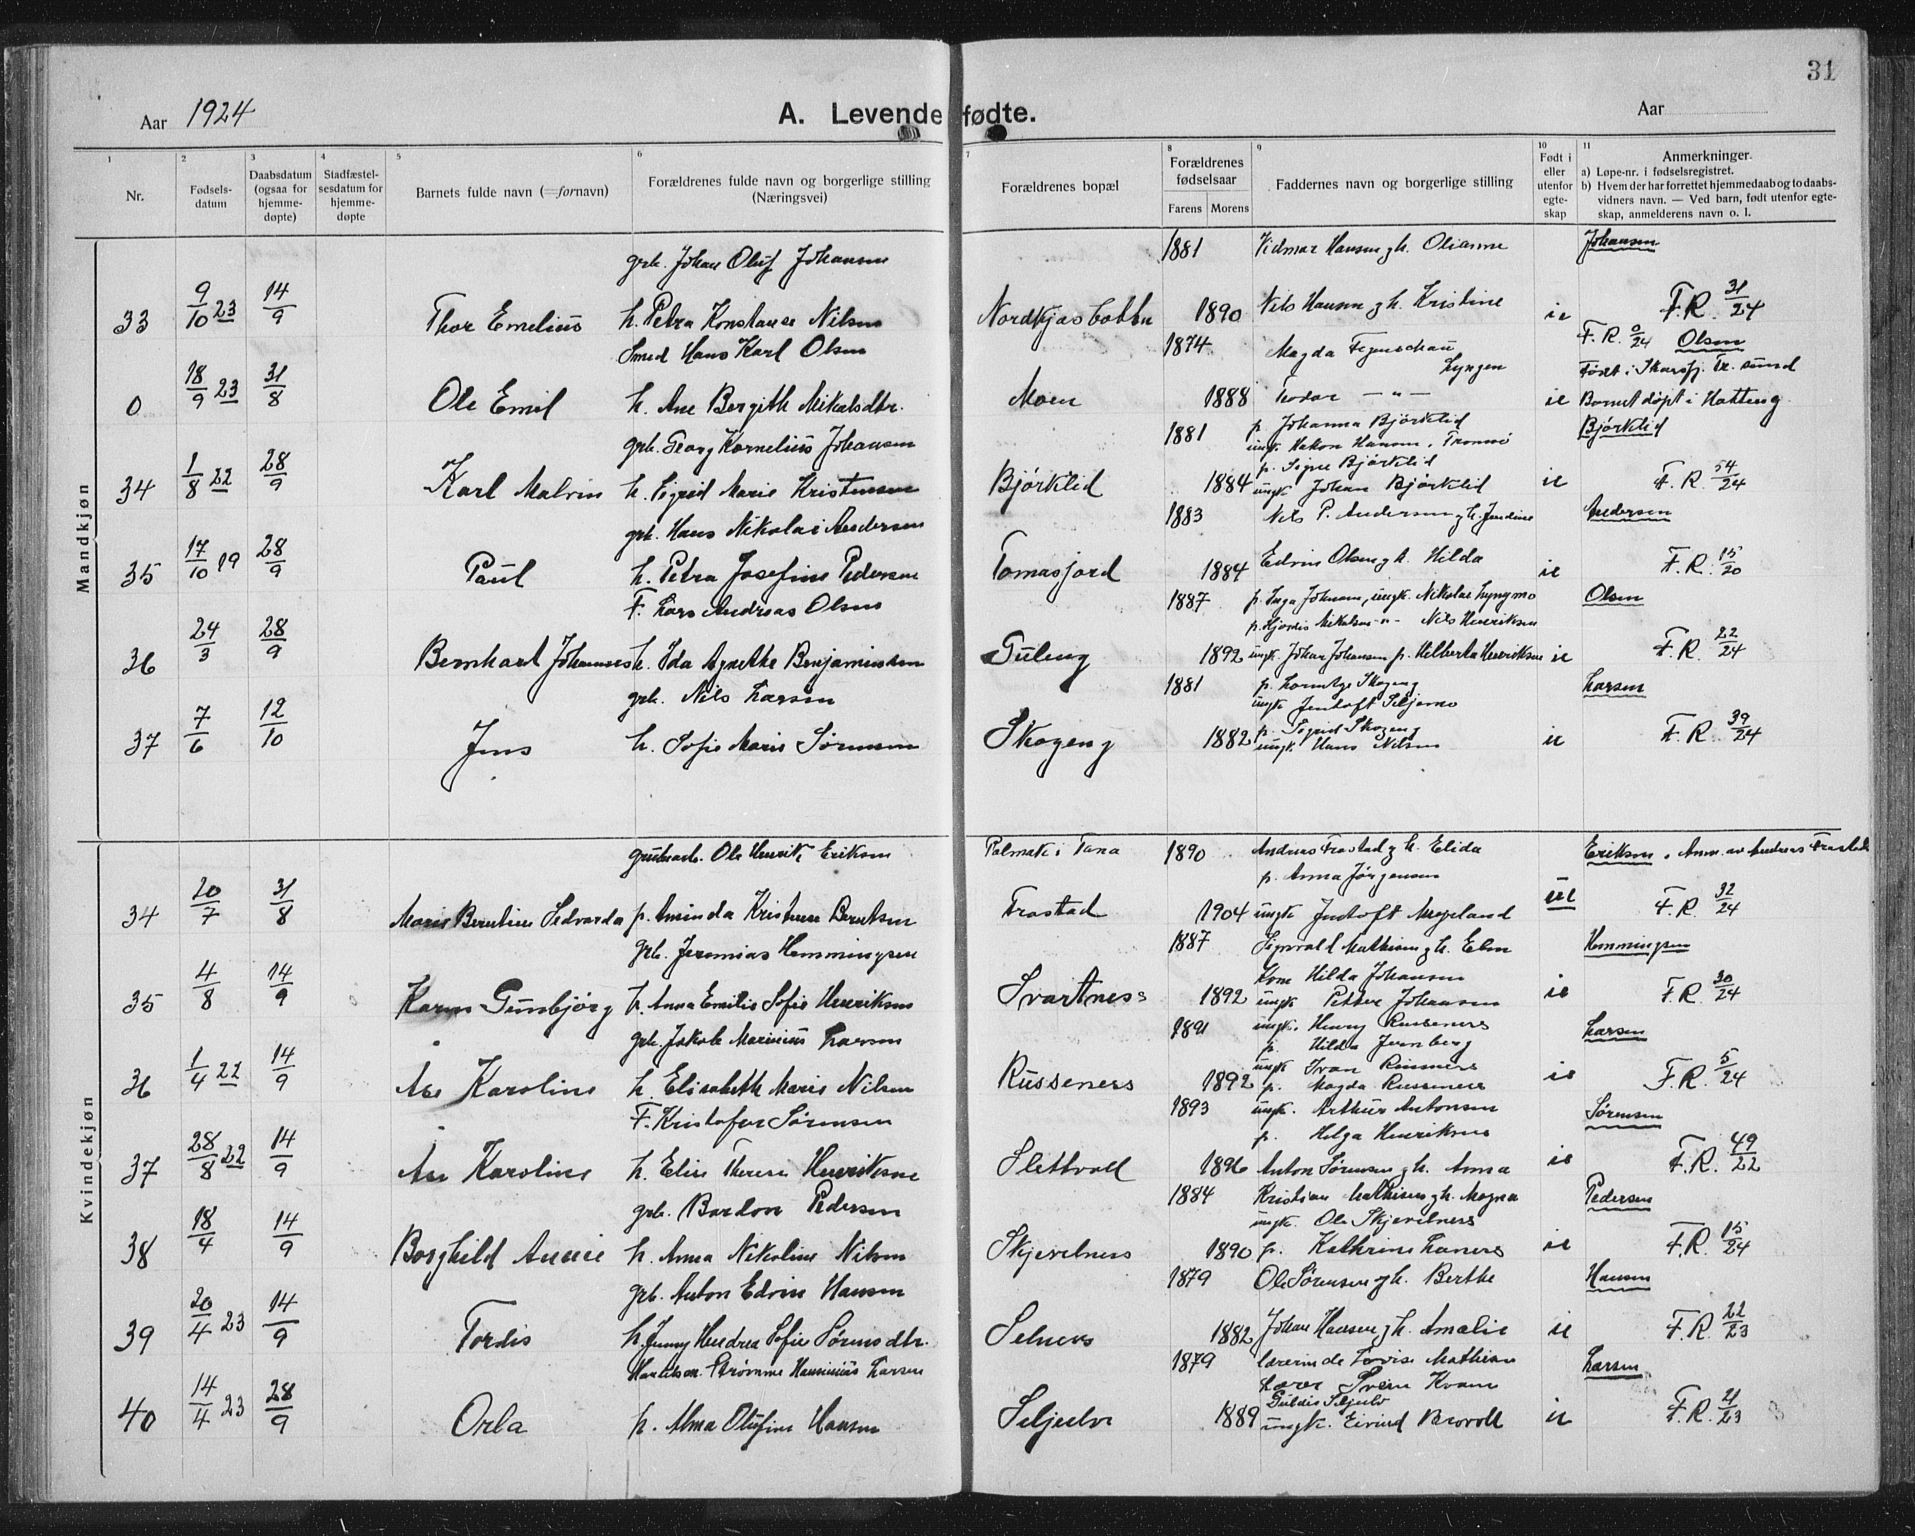 31
Aar 1924 A. Levendefødte. Aar
1 2 3 4 5 6 7 8 9 10 11
Nr. Fødsels-datum Daabsdatum (ogsaa for hjemme-døpte) Stadfæstel-sesdatum for hjemme-døpte Barnets fulde navn (=fornavn) Forældrenes fulde navn og borgerlige stilling (Næringsvei) Forældrenes bopæl Forældrenes fødselsaar Farens Morens Faddernes navn og borgerlige stilling Født i eller utenfor egte-skap Anmerkninger. a) Løpe-nr. i fødselsregistret. b) Hvem der har forrettet hjemmedaab og to daabs-vidners navn. — Ved barn, født utenfor egte-skap, anmelderens navn o. l.
Mandkjøn
grb. Johan Oluf Johansen 1881 Vidmar Hansen g h. Olianne Johansen
33 9/10 23 14/9 Thor Emelius h. Petra Konstanse Nilsen Nordkjosbotn 1890 Nils Hansen g h. Kristine ie F.R. 31/24
Smed Hans Karl Olsen 1874 Magda Figenschau F.R. 0/24 Olsen
Lyngen Født i Skarsfj. Tr. sund
0 18/9 23 31/8 Ole Emil h. Ane Bergith Mikalsdtr. Moen 1888 Teodor — " — ie Barnet døpt i Hatteng
grb. Georg Kornelius Johansen 1881 p. Johanna Bjørklid Bjørklid
ungk. Hakon Hansen, Tromsø
p. Signe Bjørklid
34 1/8 22 28/9 Karl Malvin h. Sigrid Marie Kristensen Bjørklid 1884 ungk. Johan Bjørklid ie F.R. 54/24
grb. Hans Nikolai Andersen 1883 Nils P. Andersen g h. Jensine Andersen
35 17/10 19 28/9 Paul h. Petra Josefine Pedersen Tomasjord 1884 Edvin Olsen g h. Hilda ie F.R. 15/20
F. Lars Andreas Olsen 1887 p. Inga Johnsen, ungk. Nikolai Lyngmo Olsen
p. Hjørdis Mikalsen -"- Nils Henriksen
36 24/3 28/9 Bernhart Johannes h. Ida Agnethe Benjaminsen Guleng 1892 ungk. Johan Johansen p. Helberta Henriksen ie F.R. 22/24
grb. Nils Larsen 1881 p. Skogeng Larsen
ungk. Jentoft Seljemo
p. Sigrid Skogeng
37 7/6 12/10 Jens h. Sofie Marie Sørensen Skogeng 1882 ungk. Hans Nilsen ie F.R. 39/24
Kvindekjøn
grubearb. Ole Henrik Eriksen Polmak i Tana 1890 Andreas Frostad g h. Elida Eriksen. Anm. av Andreas Frostad
p. Anna Jørgensen
34 20/7 31/8 Marie Berntine Sedvarda p. Aminda Kristine Berntsen Frostad 1904 ungk Jentoft Mogeland ue F.R. 32/24
grb. Jeremias Hemmingsen 1887 Sigvald Mathisen g h. Elen Hemmingsen
Kone Hilda Johansen
35 4/8 14/9 Karen Gunbjørg h. Anna Emilie Sofie Henriksen Svartness 1892 ungk Petter Johansen ie F.R. 30/24
grb. Jakob Marinius Larsen 1891 ungk. Henry Russenes Larsen
p. Hilda Jernberg
ungk Ivan
36 1/4 22 14/9 Åse Karoline h. Elisabeth Marie Nilsen Russenes 1892 p. Magda Russenes ie F.R. 5/24
F. Kristofer Sørensen 1893 ungk. Arthur Antonsen Sørensen
p. Helga Henriksen
37 28/8 22 14/9 Åse Karoline h. Elise Therese Henriksen Slettvoll 1896 Anton Sørensen g h. Anna ie F.R. 49/22
grb. Bardon Pedersen 1884 Kristian Mathisen g h. Magna Pedersen
ungk. Ole Skjevelnes
38 18/4 14/9 Borghild Annie h. Anna Nikoline Nilsen Skjevelnes 1890 p. Kathrine Lanes ie F.R. 15/24
grb. Anton Edvin Hansen 1879 Ole Sørensen g h. Berthe Hansen
39 20/4 23 14/9 Tordis h. Jenny Hendrea Sofie Sørensdtr. Selnes 1882 Johan Hansen g h. Amalie ie F.R. 22/23
Handelsm. Strømme Hansinius Larsen 1879 Lærerinde Lovise Mathisen Larsen
Lærer Svein Kvam
Guldis Seljelv
40 14/4 23 28/9 Orla p. Alma Olufine Hansen Seljelv 1889 ungk. Eivind Brovoll ie F.R. 21/23